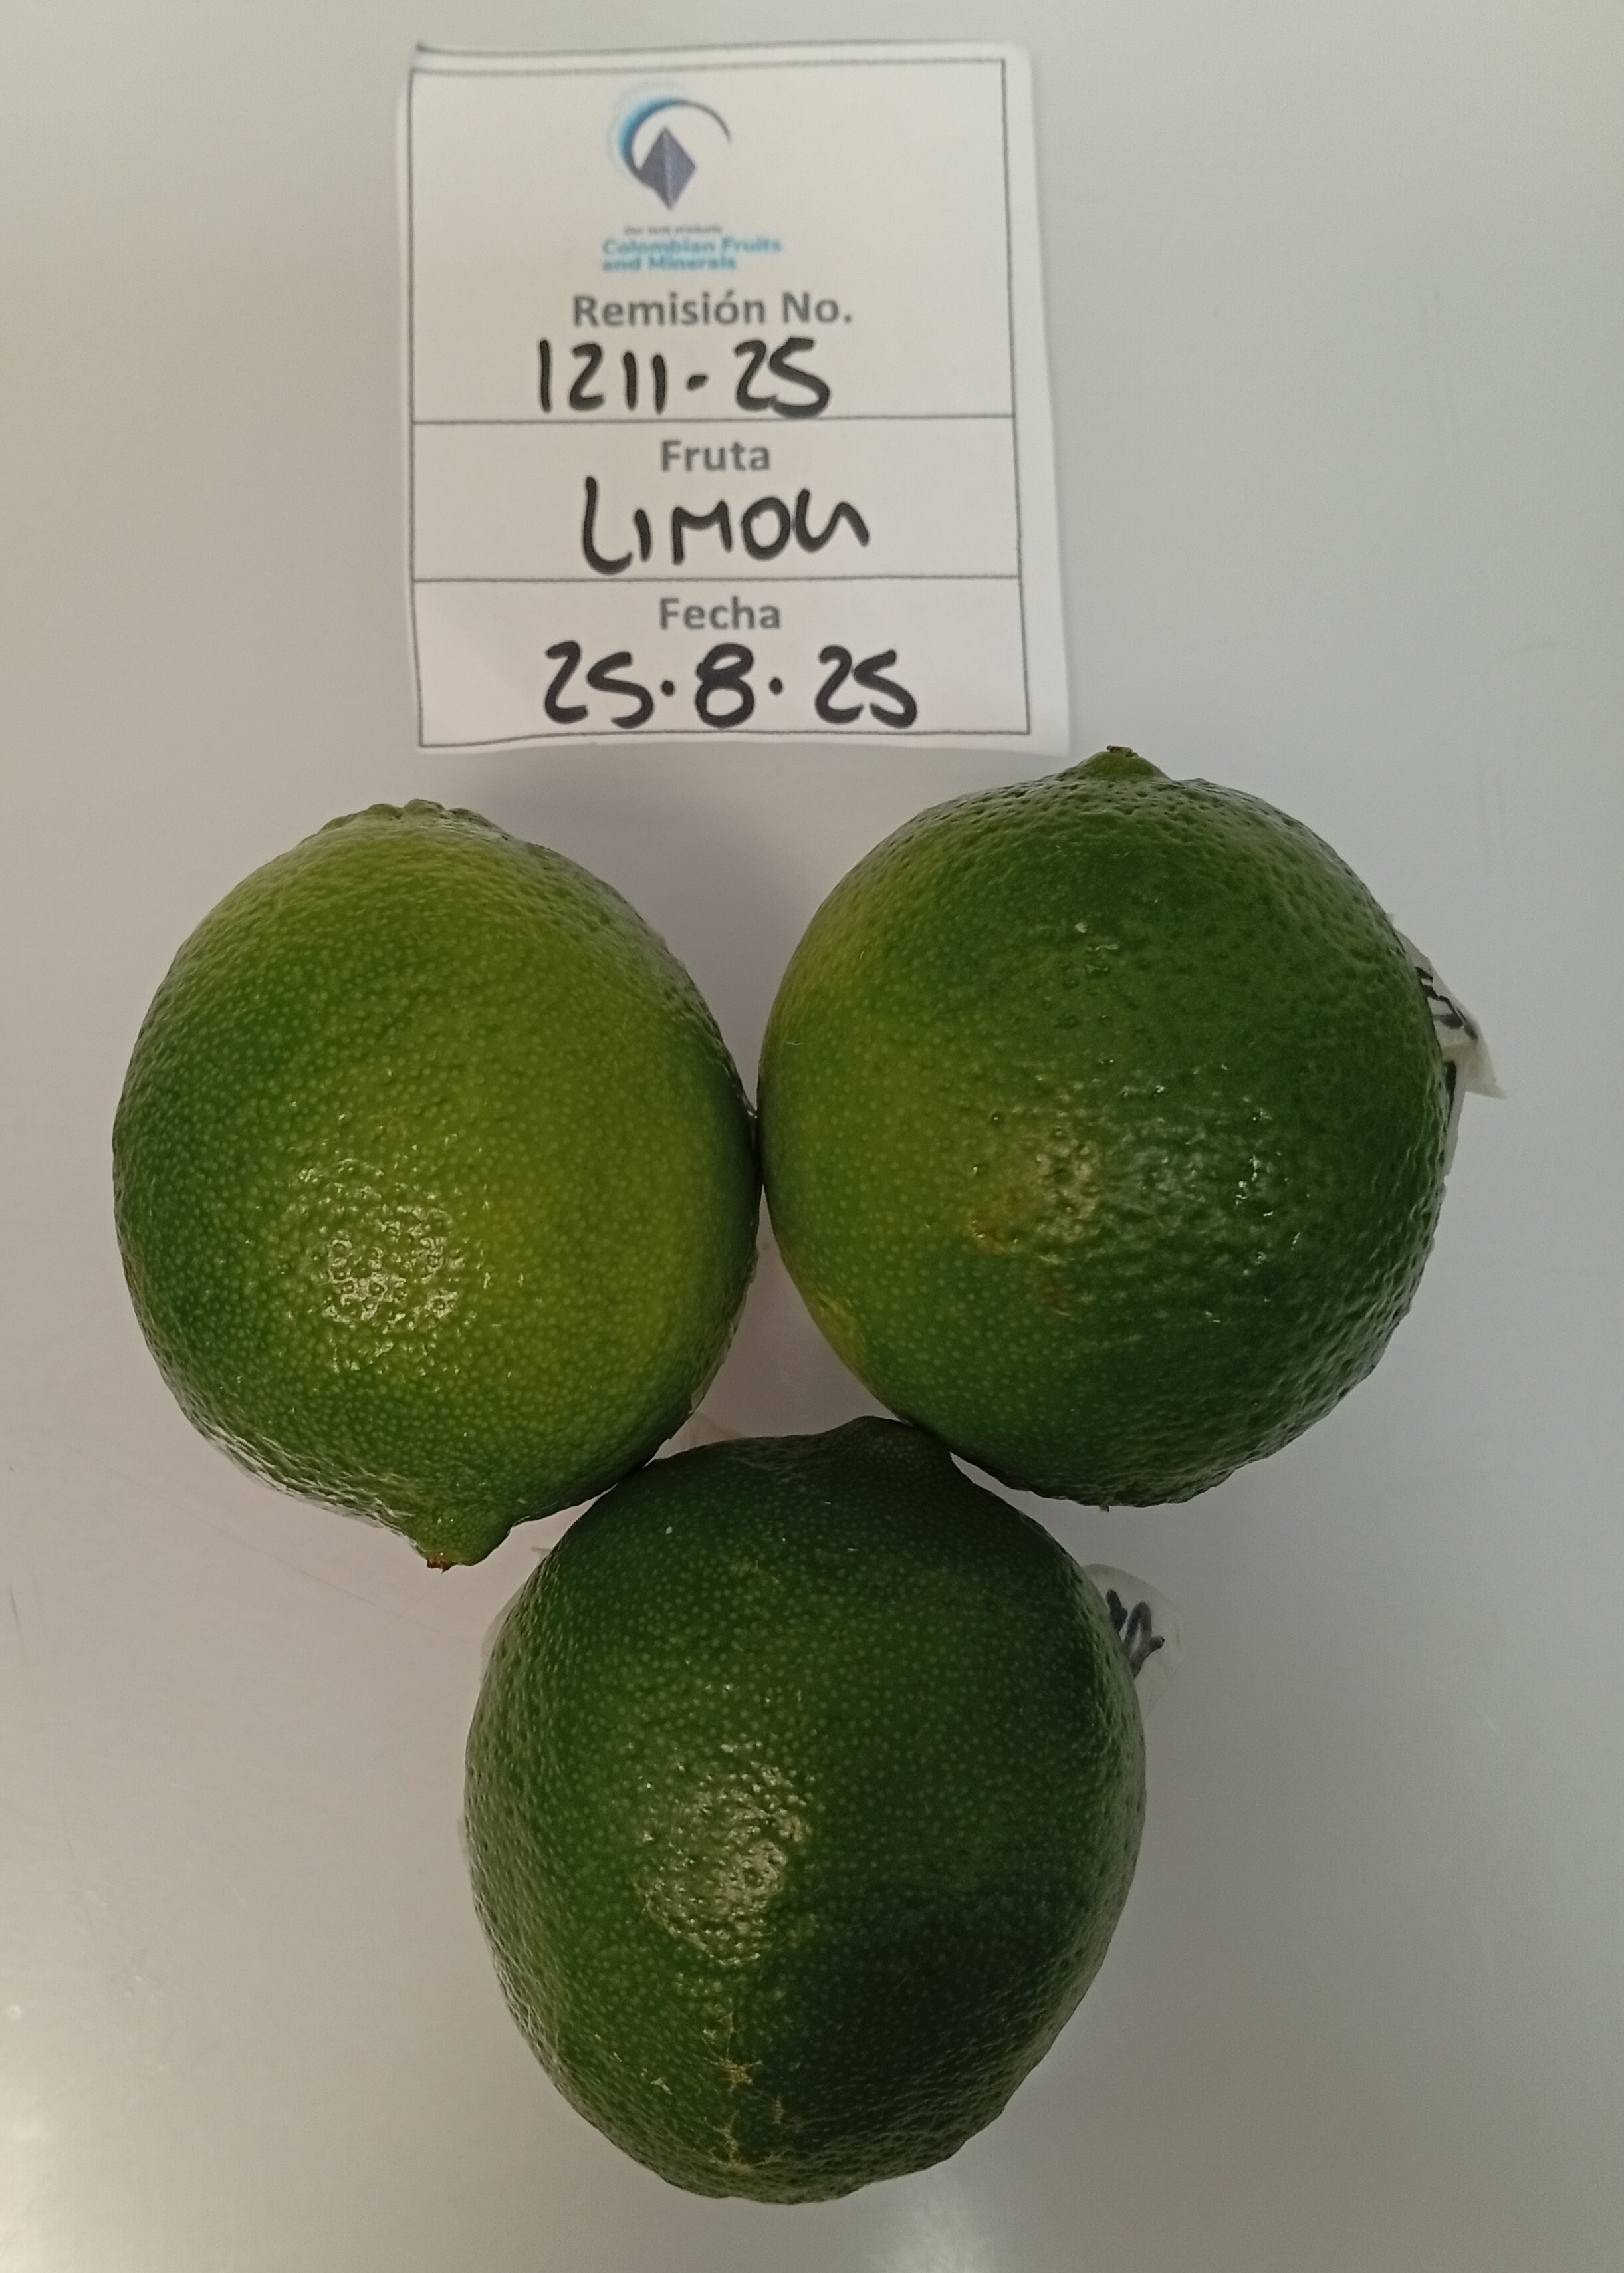 Our land products
Colombian Fruits
and Minerals
Remisión No.
1211-25
Fruta
LIMON
Fecha
25.8.25